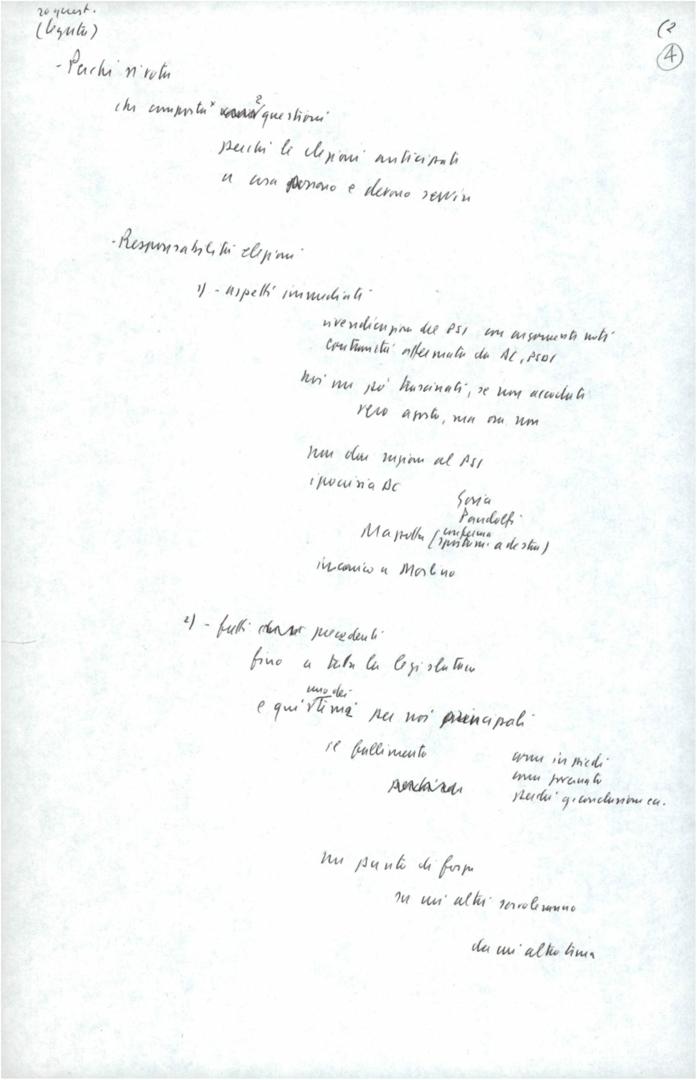 (2
4
- Perché si vota
che comporta 2 questioni
perché le elezioni anticipate
a cosa possono e devono servire
- Responsabilità elezioni
1) - aspetti immediati
rivendicazione del PSI con argomenti noti
continuità affermata da DC, PSDI
noi un po' trascinati, se non accodati
vero agosto, ma ora non
non dare ragione al PSI
ipocrisia DC
Goria
Pandolfi
Mazzotta (conferma
spostam. a destra)
incarico a Morlino
2) - fatti precedenti
fino a tutta la legislatura
uno dei
e qui tema per noi principali
il fallimento
come in piedi
perché q. conclusione ecc.
un punto di forza
su cui altri sorvoleranno
da cui altro tema